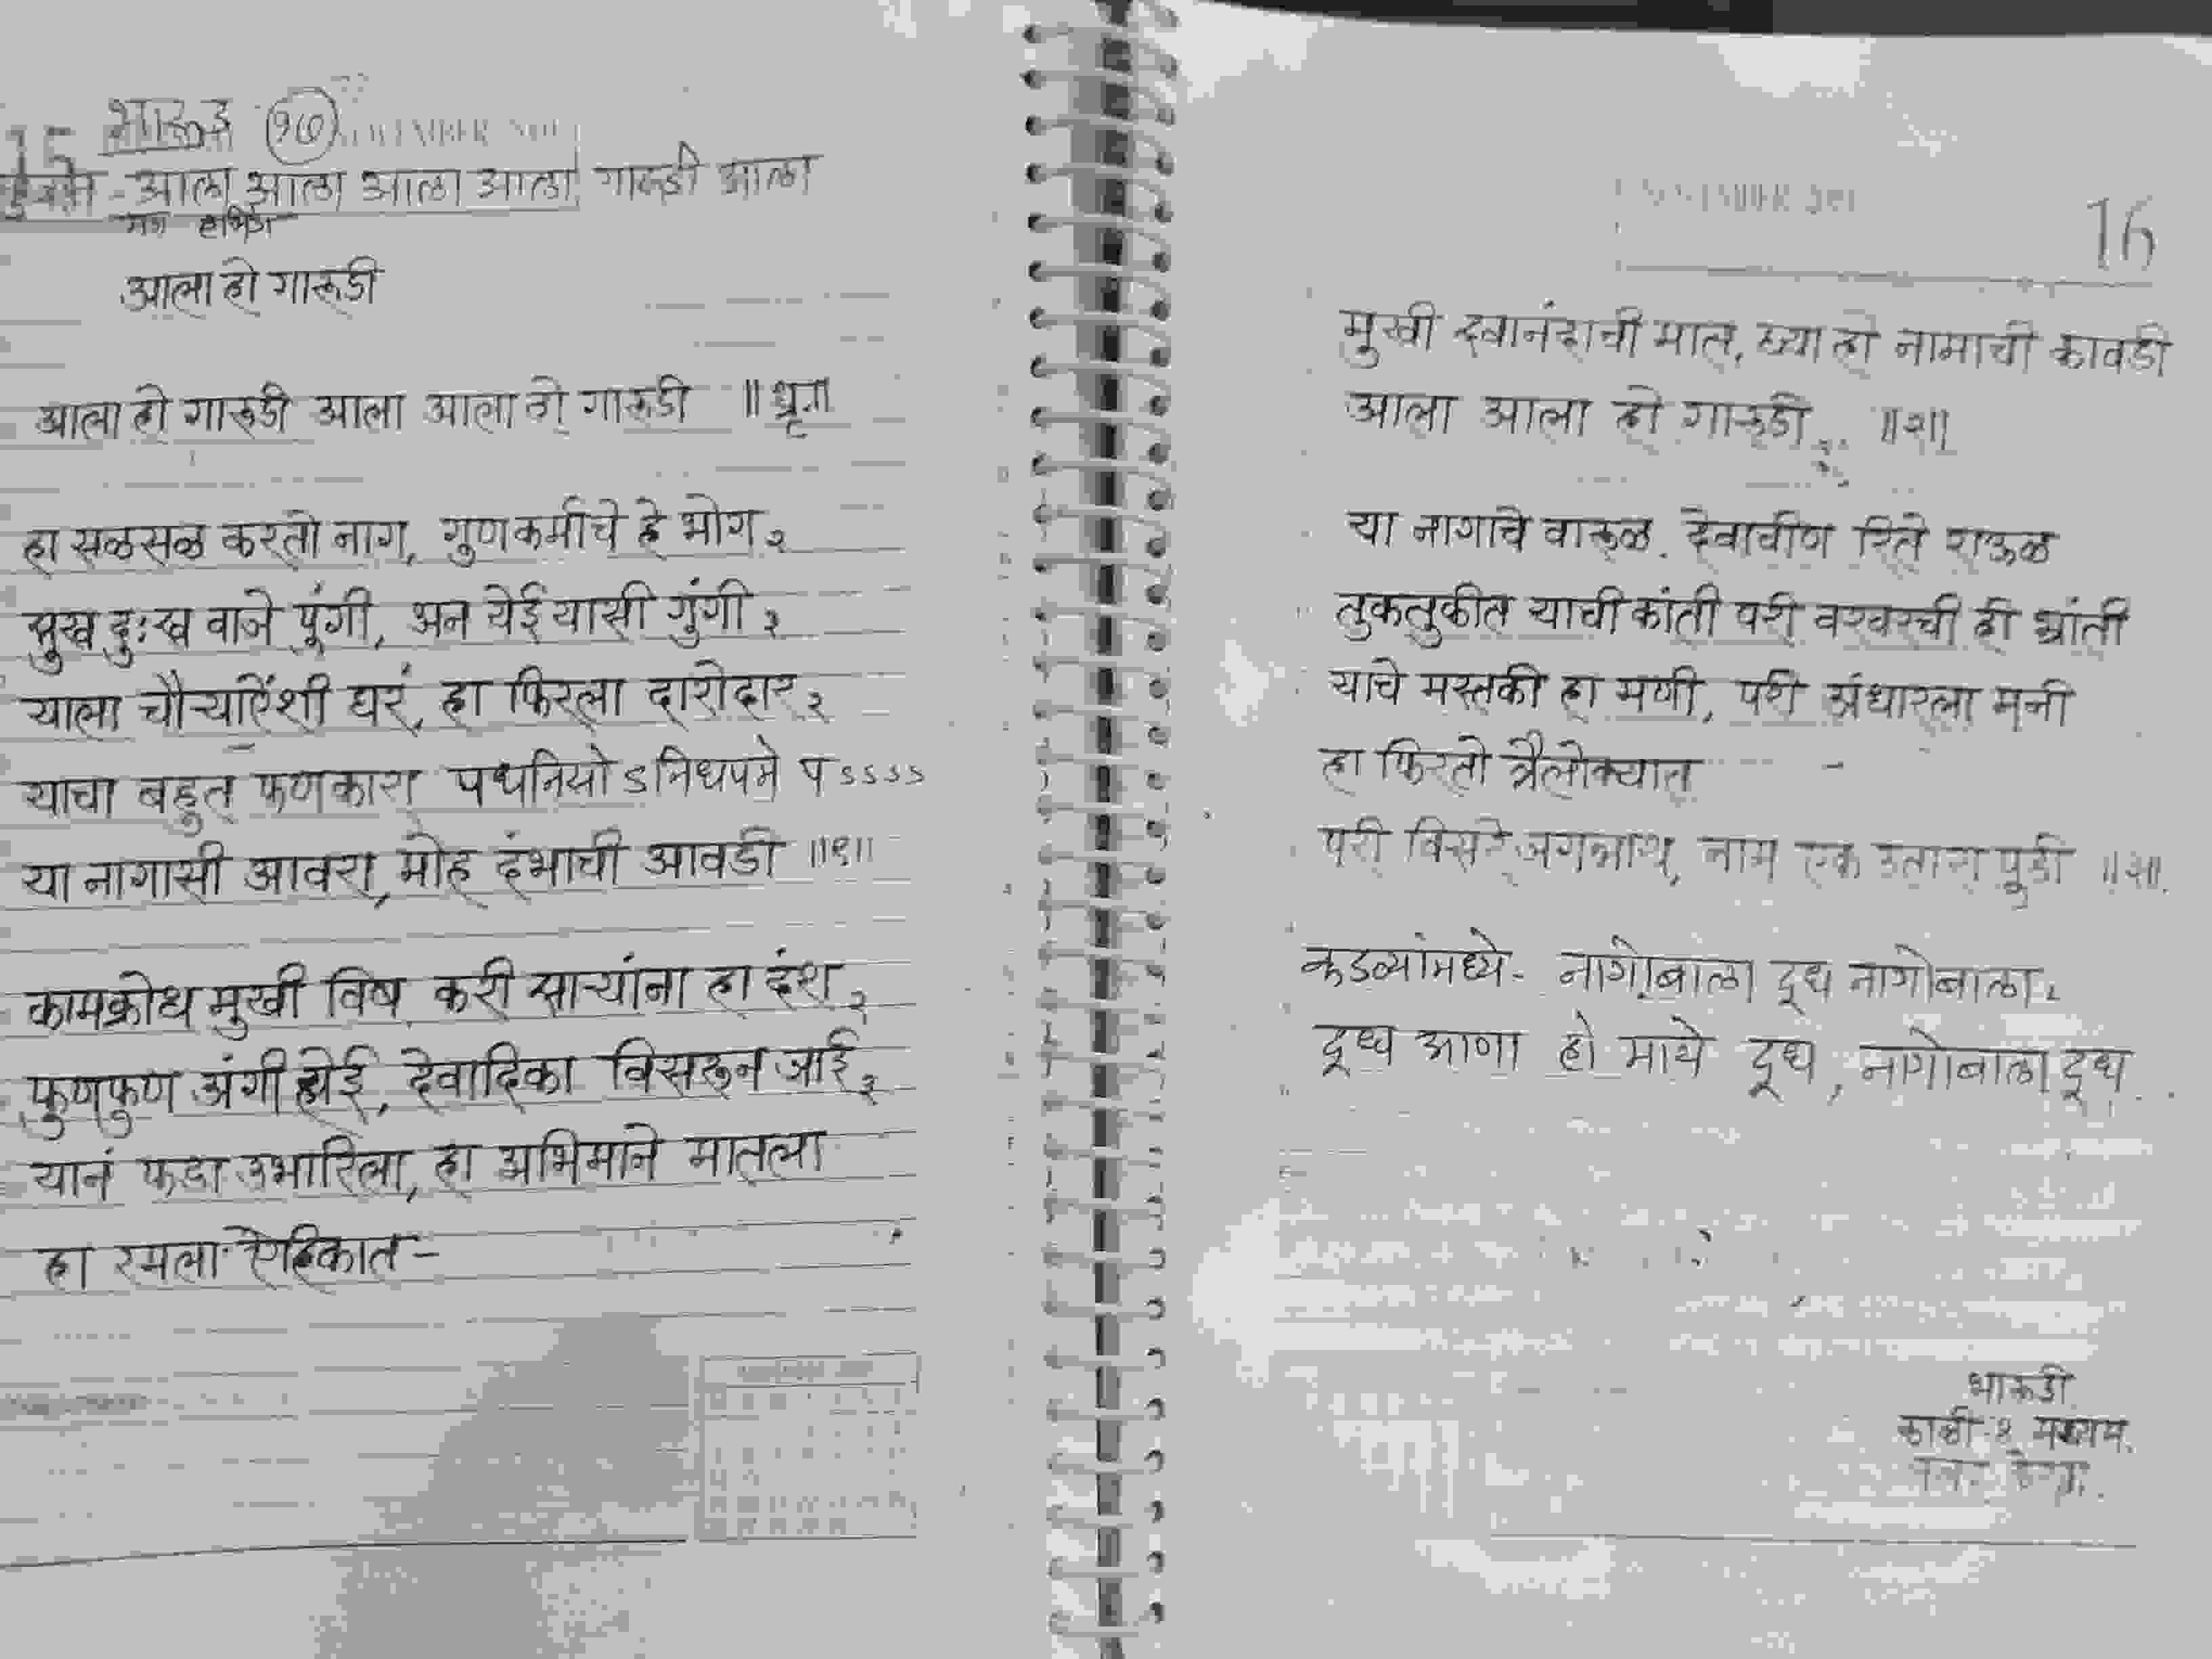 भारुड १७
15 NOVEMBER
आला आला आला आला गारूडी आला
आला हो गारूडी
आला हो गारूडी आला आला हो गारूडी ॥धृ॥
हा सळसळ करतो नाग, गुणकर्माचे हे भोग २
सुख दुःख वाजे पूंगी, अन येई यासी गुंगी २
याला चौऱ्याऐंशी घरं, हा फिरला दारोदार २
याचा बहुत फणकारा पधनिसो ऽनिधपमे प ऽऽऽऽ
या नागासी आवरा, मोह दंभाची आवडी ॥१॥
कामक्रोध मुखी विष करी साऱ्यांना हा दंश २
फुणफुण अंगी होई, देवादिका विसरून जाई २
यानं फडा उभारिला, हा अभिमाने मातला
हा रमला ऐहिकात -
NOVEMBER
16
मुखी स्वानंदाची मात, घ्या हो नामाची कावडी
आला आला हो गारूडी ॥२॥
या नागाचे वारूळ. देवावीण रिते राऊळ
तुकतुकीत याची कांती परी वरवरची ही भ्रांती
याचे मस्तकी हा मणी, परी अंधारला मनी
हा फिरतो त्रैलोक्यात -
परी विसरे जगन्नाथ, नाम एक उतारा पुडी ॥३॥
कडव्यांमध्ये - नागोबाला दूध नागोबाला २
दूध आणा हो माये दूध, नागोबाला दूध
भारूडी
काळी १ मध्यम.